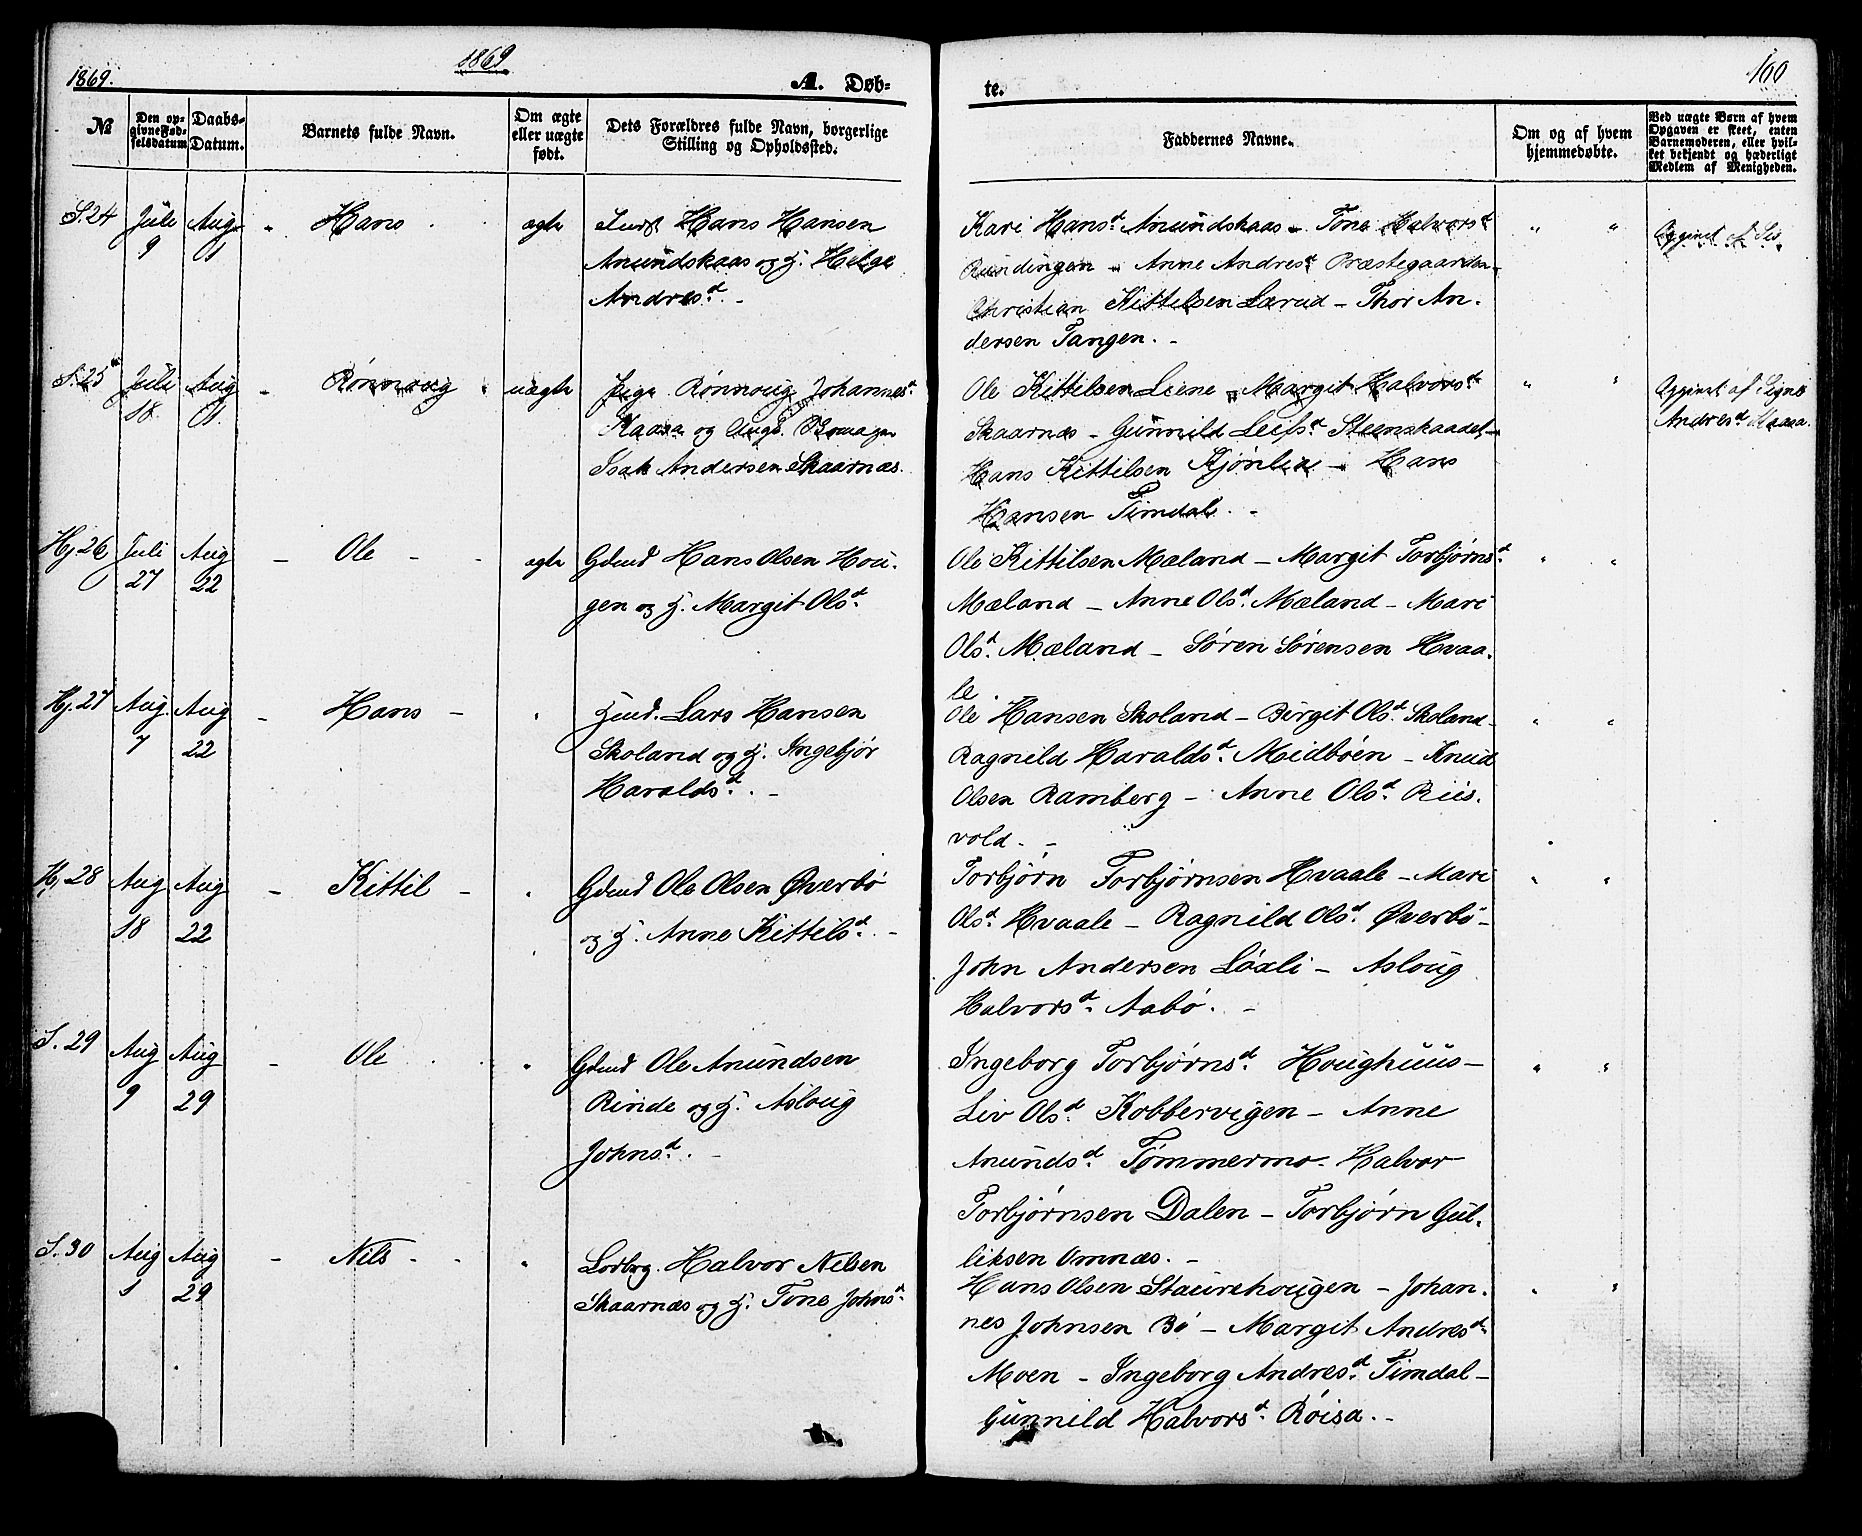 1869.
1869
A. Døb-
te.
100
№
Den op-
givne Fød-
selsdatum
Daabs-
Datum.
Barnets fulde Navn.
Om ægte
eller uægte
født.
Dets Forældres fulde Navn, borgerlige
Stilling og Opholdssted.
Faddernes Navne.
Om og af hvem
hjemmedøbte.
Ved uægte Børn af hvem
Opgaven er skeet, enten
Barnemoderen, eller hvil-
ket bekjendt og hæderligt
Medlem af Menigheden.
S. 24 Juli 9 Aug - Hans ægte
Hans Hansen
Anundskaas og H. Helge
Andresd. -
Kari Hansd. Anundskaas - Tone Halvorsd.
Rundingen - Anne Andresd. Præstegaarden -
Christian Kittilsen Lærud - Thor An-
dersen Tangen. -
" "
S. 25 Juli 18 Aug - Rønnoug uægte
Pige Rønnoug Johannesd.
Kaasa og Ungk.
Isak Andersen Skaarnæs.
Ole Kittilsen Liene - Margit Halvorsd.
Skaarnæs - Gunnild Leifsd. Steenskaadet -
Hans Kittilsen Kjønlie - Hans
Hansen Timdal. -
" "
af Signe
Andresd. Kaasa.
Hj. 26 Juli 27 Aug 22 - Ole - ægte
Gdmd Hans Olsen Hou-
gen og H. Margit Olsd.
Ole Kittilsen Mæland - Margit Torbjørnsd.
Mæland - Anne Olsd. Mæland - Mari
Olsd. Mæland - Søren Sørensen Hvaa-
le.
" "
Hj. 27 Aug. 7 Aug 22 - Hans - "
Hmd. Lars Hansen
Skoland og H. Ingebjør
Haraldsd. -
Ole Hansen Skoland - Birgit Olsd. Skoland -
Ragnild Haraldsd. Midbøen - Knud
Olsen Ramberg - Anne Olsd. Riis-
vold. -
" "
Hj. 28 Aug 18 Aug 22 - Kittil - "
Gdmd Ole Olsen Øverbø
og H. Anne Kittilsd. -
Torbjørn Torbjørnsen Hvaale - Mari
Olsd. Hvaale - Ragnild Olsd. Øverbø -
John Andersen Løxli - Asloug
Halvorsd. Aabø. -
" "
S. 29 Aug 9 Aug 29 - Ole "
Gdmd Ole Anundsen
Rinde og H. Asloug
Johnsd. -
Ingeborg Torbjørnsd. Houghuus -
Liv Olsd. Kobbervigen - Anne
Anundsd. Tømmermo - Halvor
Torbjørnsen Dalen - Torbjørn Gul-
liksen Omnæs. -
" "
S. 30 Aug 1 Aug 29 - Nils - "
Halvor Nilsen
Skaarnæs og H. Tone Johnsd.
Hans Olsen Staurehougen - Johan-
nes Johnsen Bø - Margit Andresd.
Moen - Ingeborg Andresd. Timdal -
Gunnild Halvorsd. Røisa. -
" "